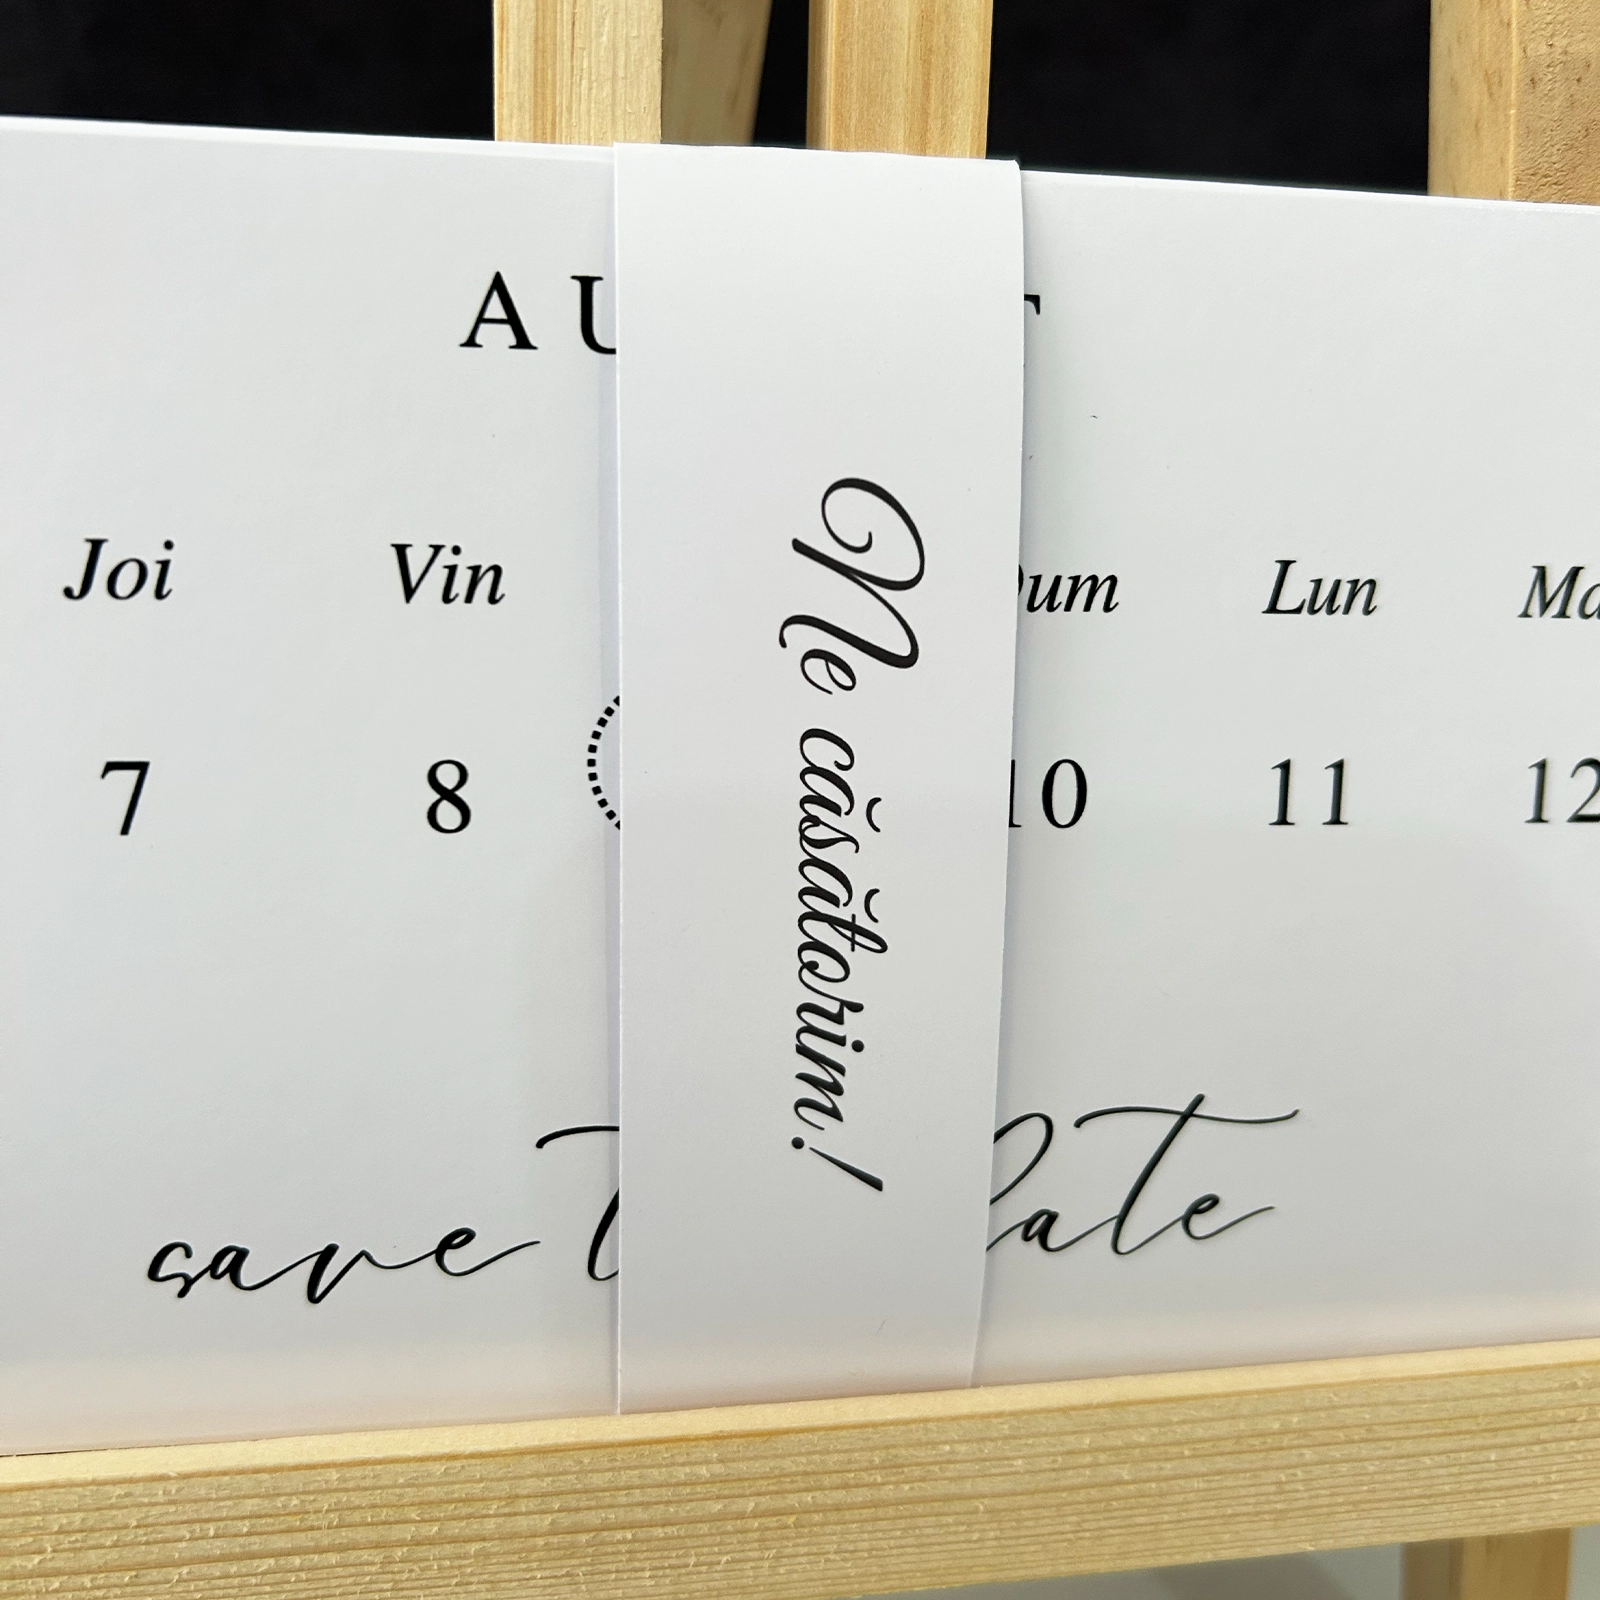 AU T
Joi Vin um Lun Ma
7 8 10 11 12
save ate
Ne căsătorim!